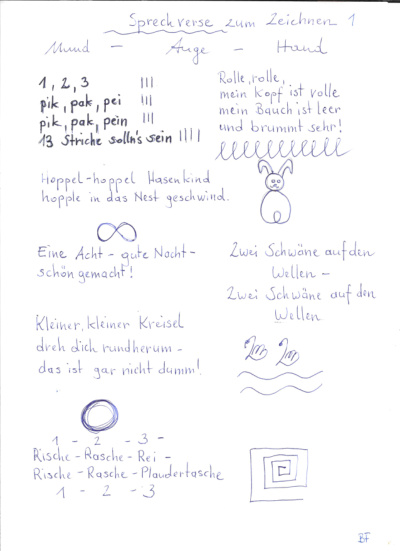 Sprechverse zum Zeichnen 1
Mund - Auge - Hand
1, 2, 3
pik, pak, pei
pik, pak, pein
13 Striche solln's sein
Rolle, rolle,
mein Kopf ist volle
mein Bauch ist leer
und brummt sehr!
Hoppel-hoppel Hasenkind
hopple in das Nest geschwind.
Eine Acht - gute Nacht -
schön gemacht!
Zwei Schwäne auf den
Wellen -
Zwei Schwäne auf den
Wellen
Kleiner, kleiner Kreisel
dreh dich rundherum -
das ist gar nicht dumm!
1 - 2 - 3 -
Rische - Rasche - Rei -
Rische - Rasche - Plaudertasche
1 - 2 - 3
BF